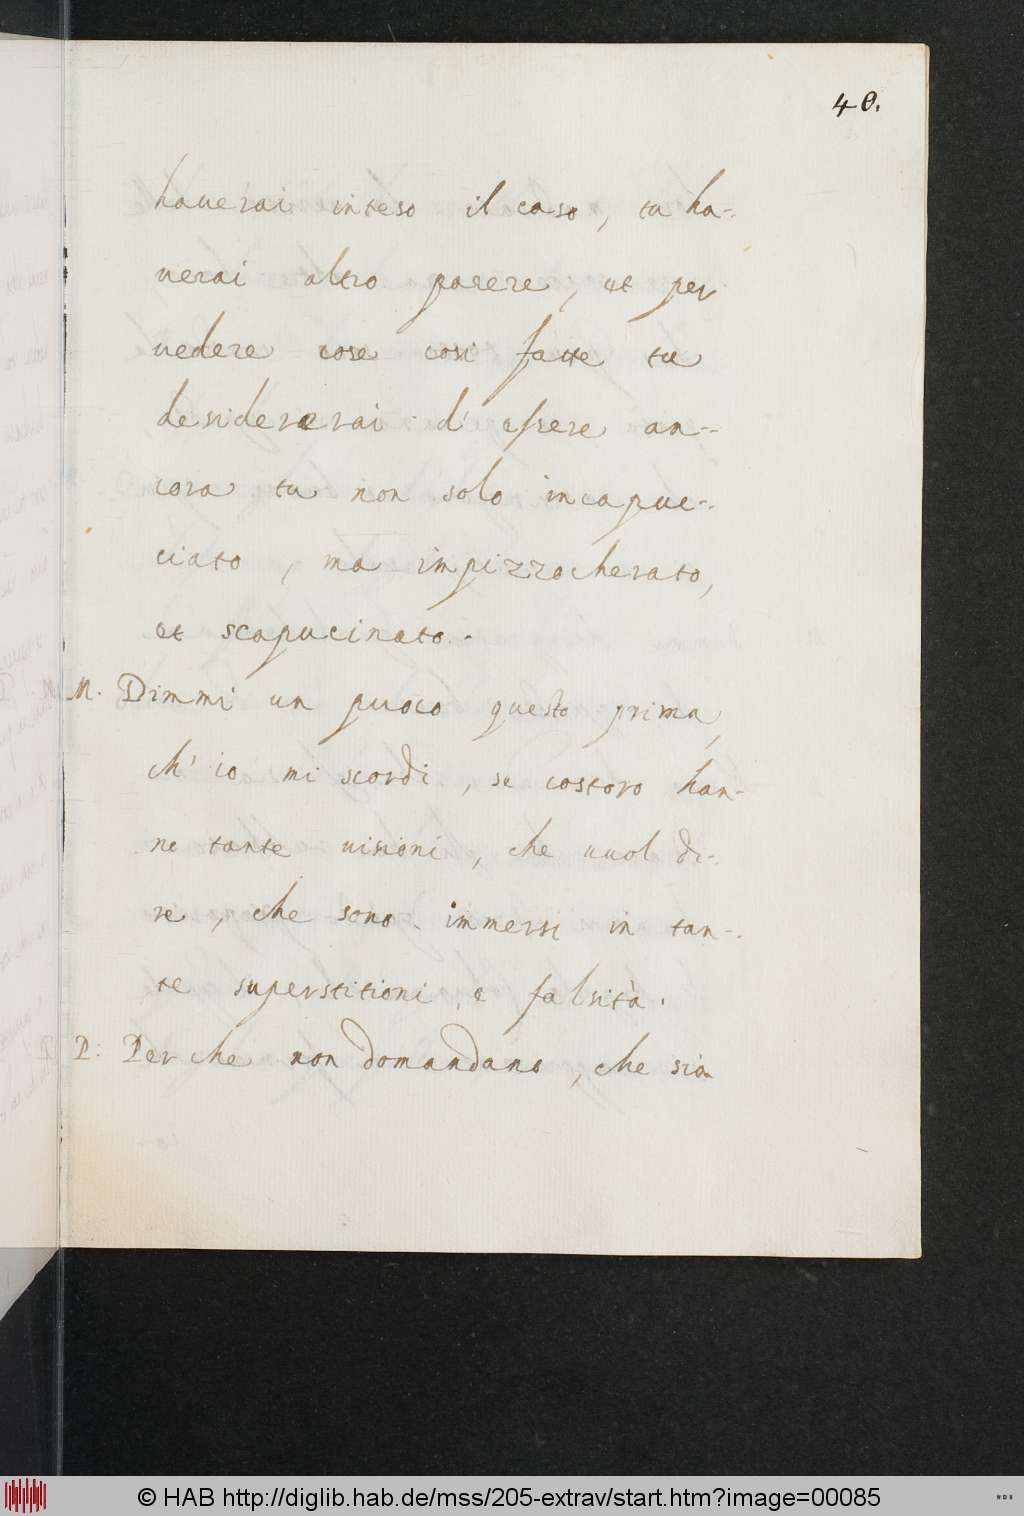 40.
hauerai inteso il caso, tu ha-
uerai altro parere, et per
uedere cose cosi fatte tu
desidererai d'essere an-
cora tu non solo incapuc-
ciato, ma impizzocherato,
et scapucinato.
M. Dimmi un puoco questo prima,
ch'io mi scordi, se costoro han-
no tante uisioni, che uuol di-
re, che sono immersi in tan-
te superstitioni, e falsità.
P: Perche non domandano, che sia
© HAB http://diglib.hab.de/mss/205-extrav/start.htm?image=00085